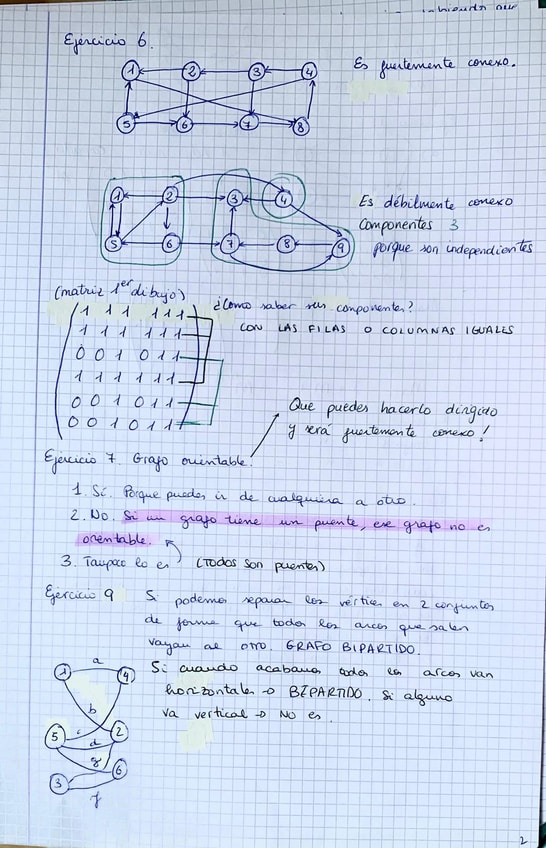 Ejercicio 6.
Es fuertemente conexo.
1 2 3 4
5 6 7 8
1 2 3 4
5 6 7 8 9
Es débilmente conexo
Componentes 3
porque son independientes
(matriz 1er dibujo)
1 1 1 1 1 1
1 1 1 1 1 1
0 0 1 0 1 1
1 1 1 1 1 1
0 0 1 0 1 1
0 0 1 0 1 1
¿Como saber sus componentes?
CON LAS FILAS O COLUMNAS IGUALES
Que puedes hacerlo dirigido
y será fuertemente conexo!
Ejercicio 7. Grafo orientable.
1. Sí. Porque puedes ir de cualquiera a otro.
2. No. Si un grafo tiene un puente, ese grafo no es
orientable.
3. Tampoco lo es (Todos son puentes)
Ejercicio 9
Si podemos separar los vértices en 2 conjuntos
de forma que todos los arcos que salen
vayan al otro. GRAFO BIPARTIDO.
Si cuando acabamos todos los arcos van
horizontales → BIPARTIDO. Si alguno
va vertical → NO es.
1 a 4
b
5 c d 2
g
3 6
f
2